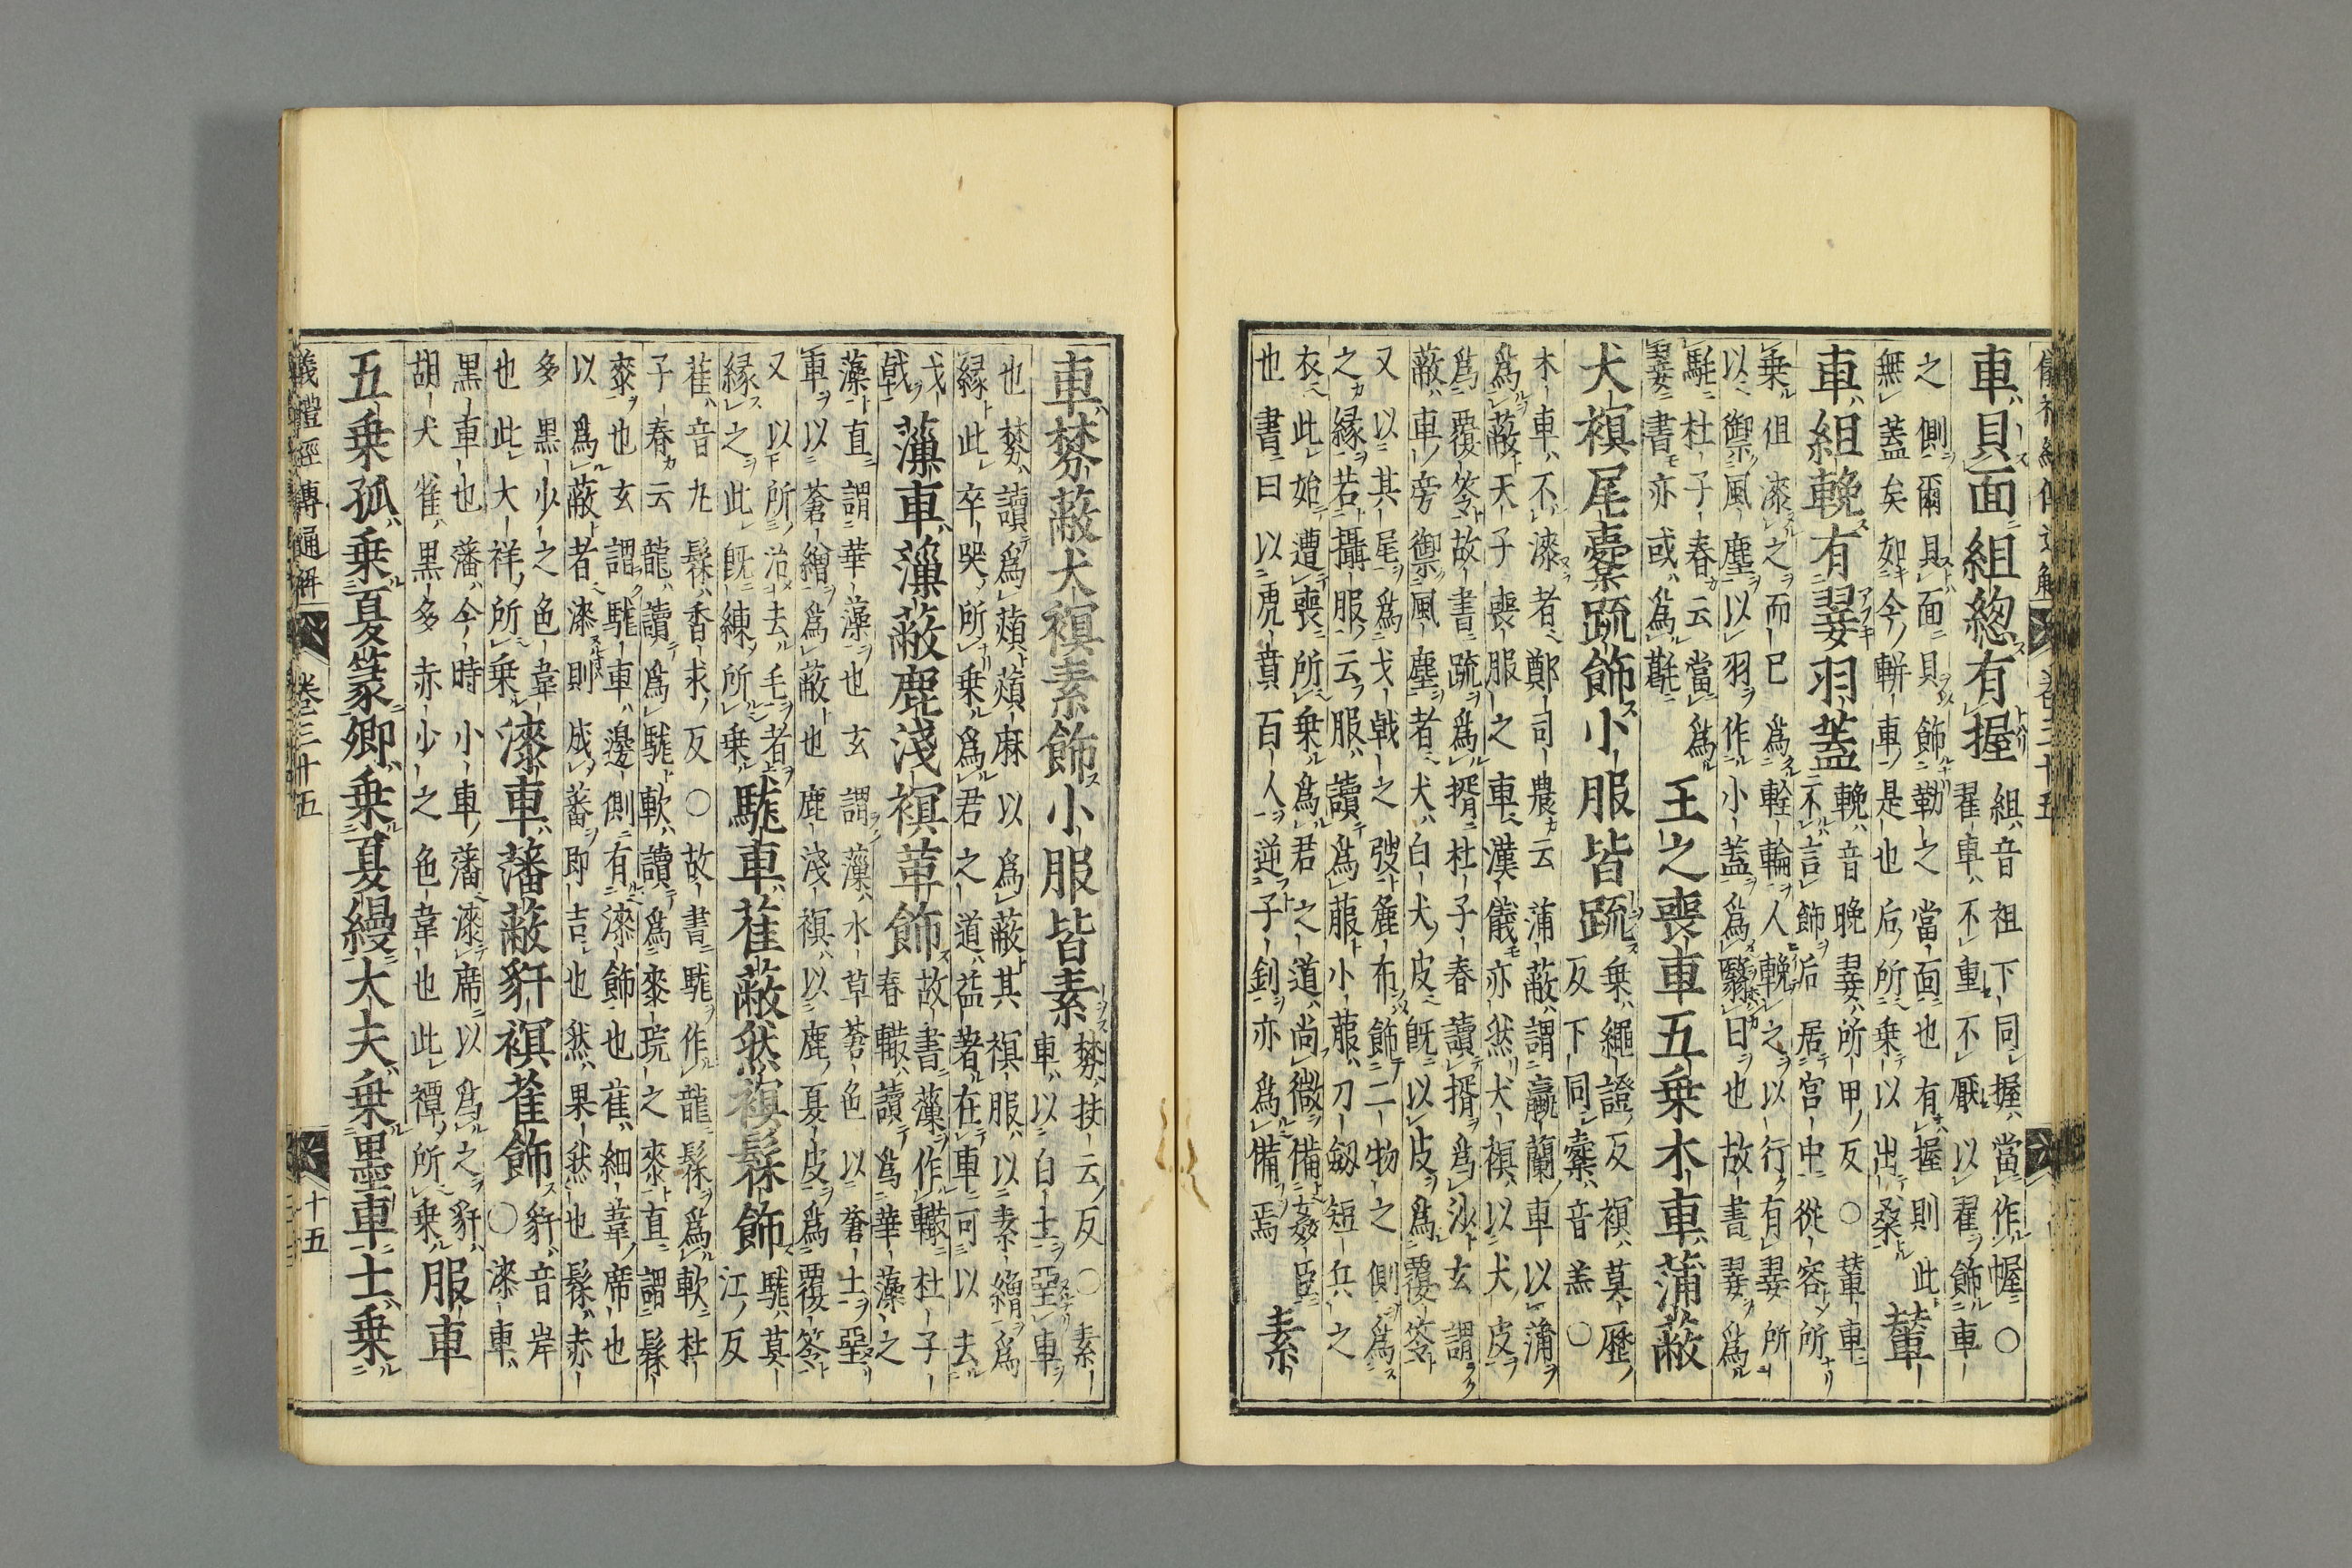 車貝面組緫有握組音祖下同握當作幄○
翟車不重不厭以翟飾車
之側爾貝面貝飾勒之當面也有握則此
無蓋矣如今軿車是也后所乗以出桑輦
車組輓有翣羽蓋輓音晚翣所甲反○輦車
不言飾后居宮中從容所
乗但漆之而已為輇輪人輓之以行有翣所
以禦風塵以羽作小蓋為翳日也故書翣為
杜子春云當為
翣書亦或為毼王之喪車五乗木車蒲蔽
犬䙈尾櫜疏飾小服皆疏乗繩證反䙈莫歷
反下同櫜音羔○
木車不漆者鄭司農云蒲蔽謂臝蘭車以蒲
為蔽天子喪服之車漢儀亦然犬䙈以犬皮
為覆笭故書疏為揟杜子春讀揟為沙玄謂
蔽車旁禦風塵者犬白犬皮既以皮為覆笭
又以其尾為戈戟之弢麤布飾二物之側為
之縁若攝服云服讀為菔小菔刀劒短兵之
衣此始遭喪所乗為君之道尚微備姦臣
也書曰以虎賁百人逆子釗亦為備焉素
車棼蔽犬䙈素飾小服皆素棼扶云反○素
車以白土堊車
也棼讀為薠薠麻以為蔽其䙈服以素繒為
縁此卒哭所乗為君之道益著在車可以去
戈戟薻車薻蔽鹿淺䙈革飾故書薻作轈杜子
春轈讀為華藻之
藻直謂華藻也玄謂薻水草蒼色以蒼土堊
車以蒼繒為蔽也鹿淺䙈以鹿夏皮為覆笭
又以所治去毛者
縁之此既練所乗駹車雚蔽然䙈髤飾駹莫
江反
雚音丸髤香求反○故書駹作龍髤為軟杜
子春云龍讀為駹軟讀為桼垸之桼直謂髤
桼也玄謂駹車邊側有漆飾也雚細葦席也
以為蔽者漆則成蕃即吉也然果然也髤赤
多黒少之色韋
也此大祥所乗漆車藩蔽豻䙈雀飾豻音岸
○漆車
黒車也藩今時小車藩漆席以為之豻
胡犬雀黒多赤少之色韋也此禫所乗服車
五乗孤乗夏篆卿乗夏縵大夫乗墨車士乗
儀禮經傳通解 卷三十五 十五